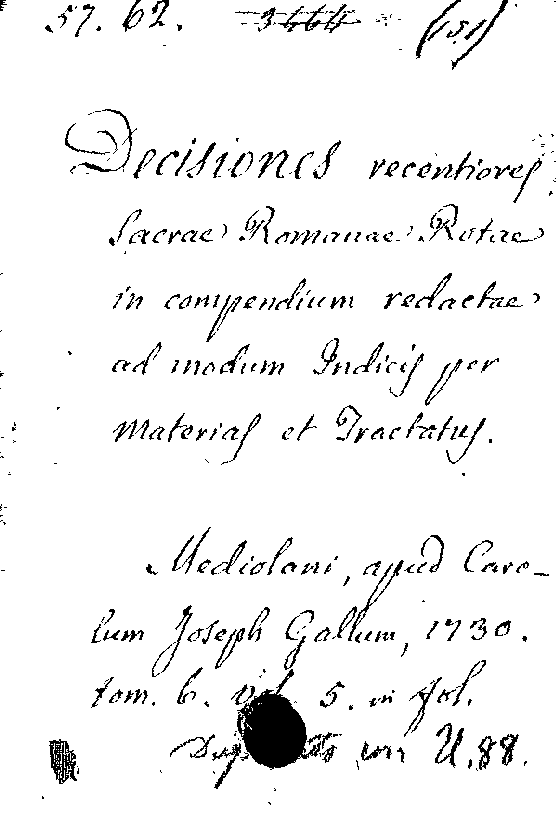 57. 62. 3464 (151)
Decisiones recentiores
Sacrae Romanae Rotae
in compendium redactae
ad modum Indicis per
Materias et Tractatus.
Mediolani, apud Caro-
lum Joseph Gallum, 1730.
tom. 6. vol. 5. in fol.
con U.88.